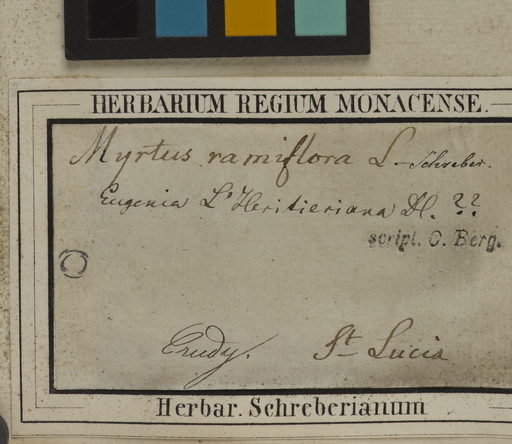 HERBARIUM REGIUM MONACENSE.
Myrtus ramiflora L. - Schreber.
Eugenia L'Heritieriana Dl. ??
script. O. Berg.
Crudy. St Lucia
Herbar. Schreberianum